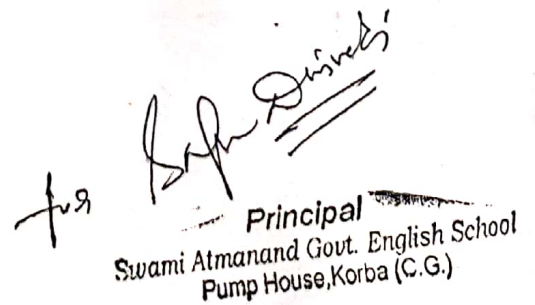 for
Principal
Swami Atmanand Govt. English School
Pump House,Korba (C.G.)